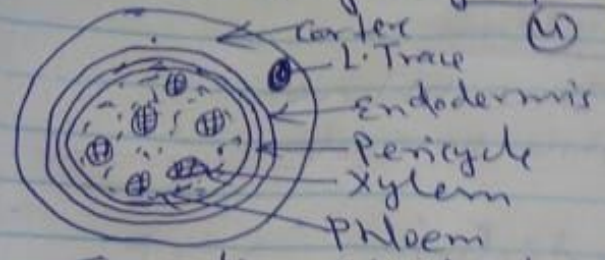 Cortex (4)
L. Trace
Endodermis
Pericycle
Xylem
Phloem